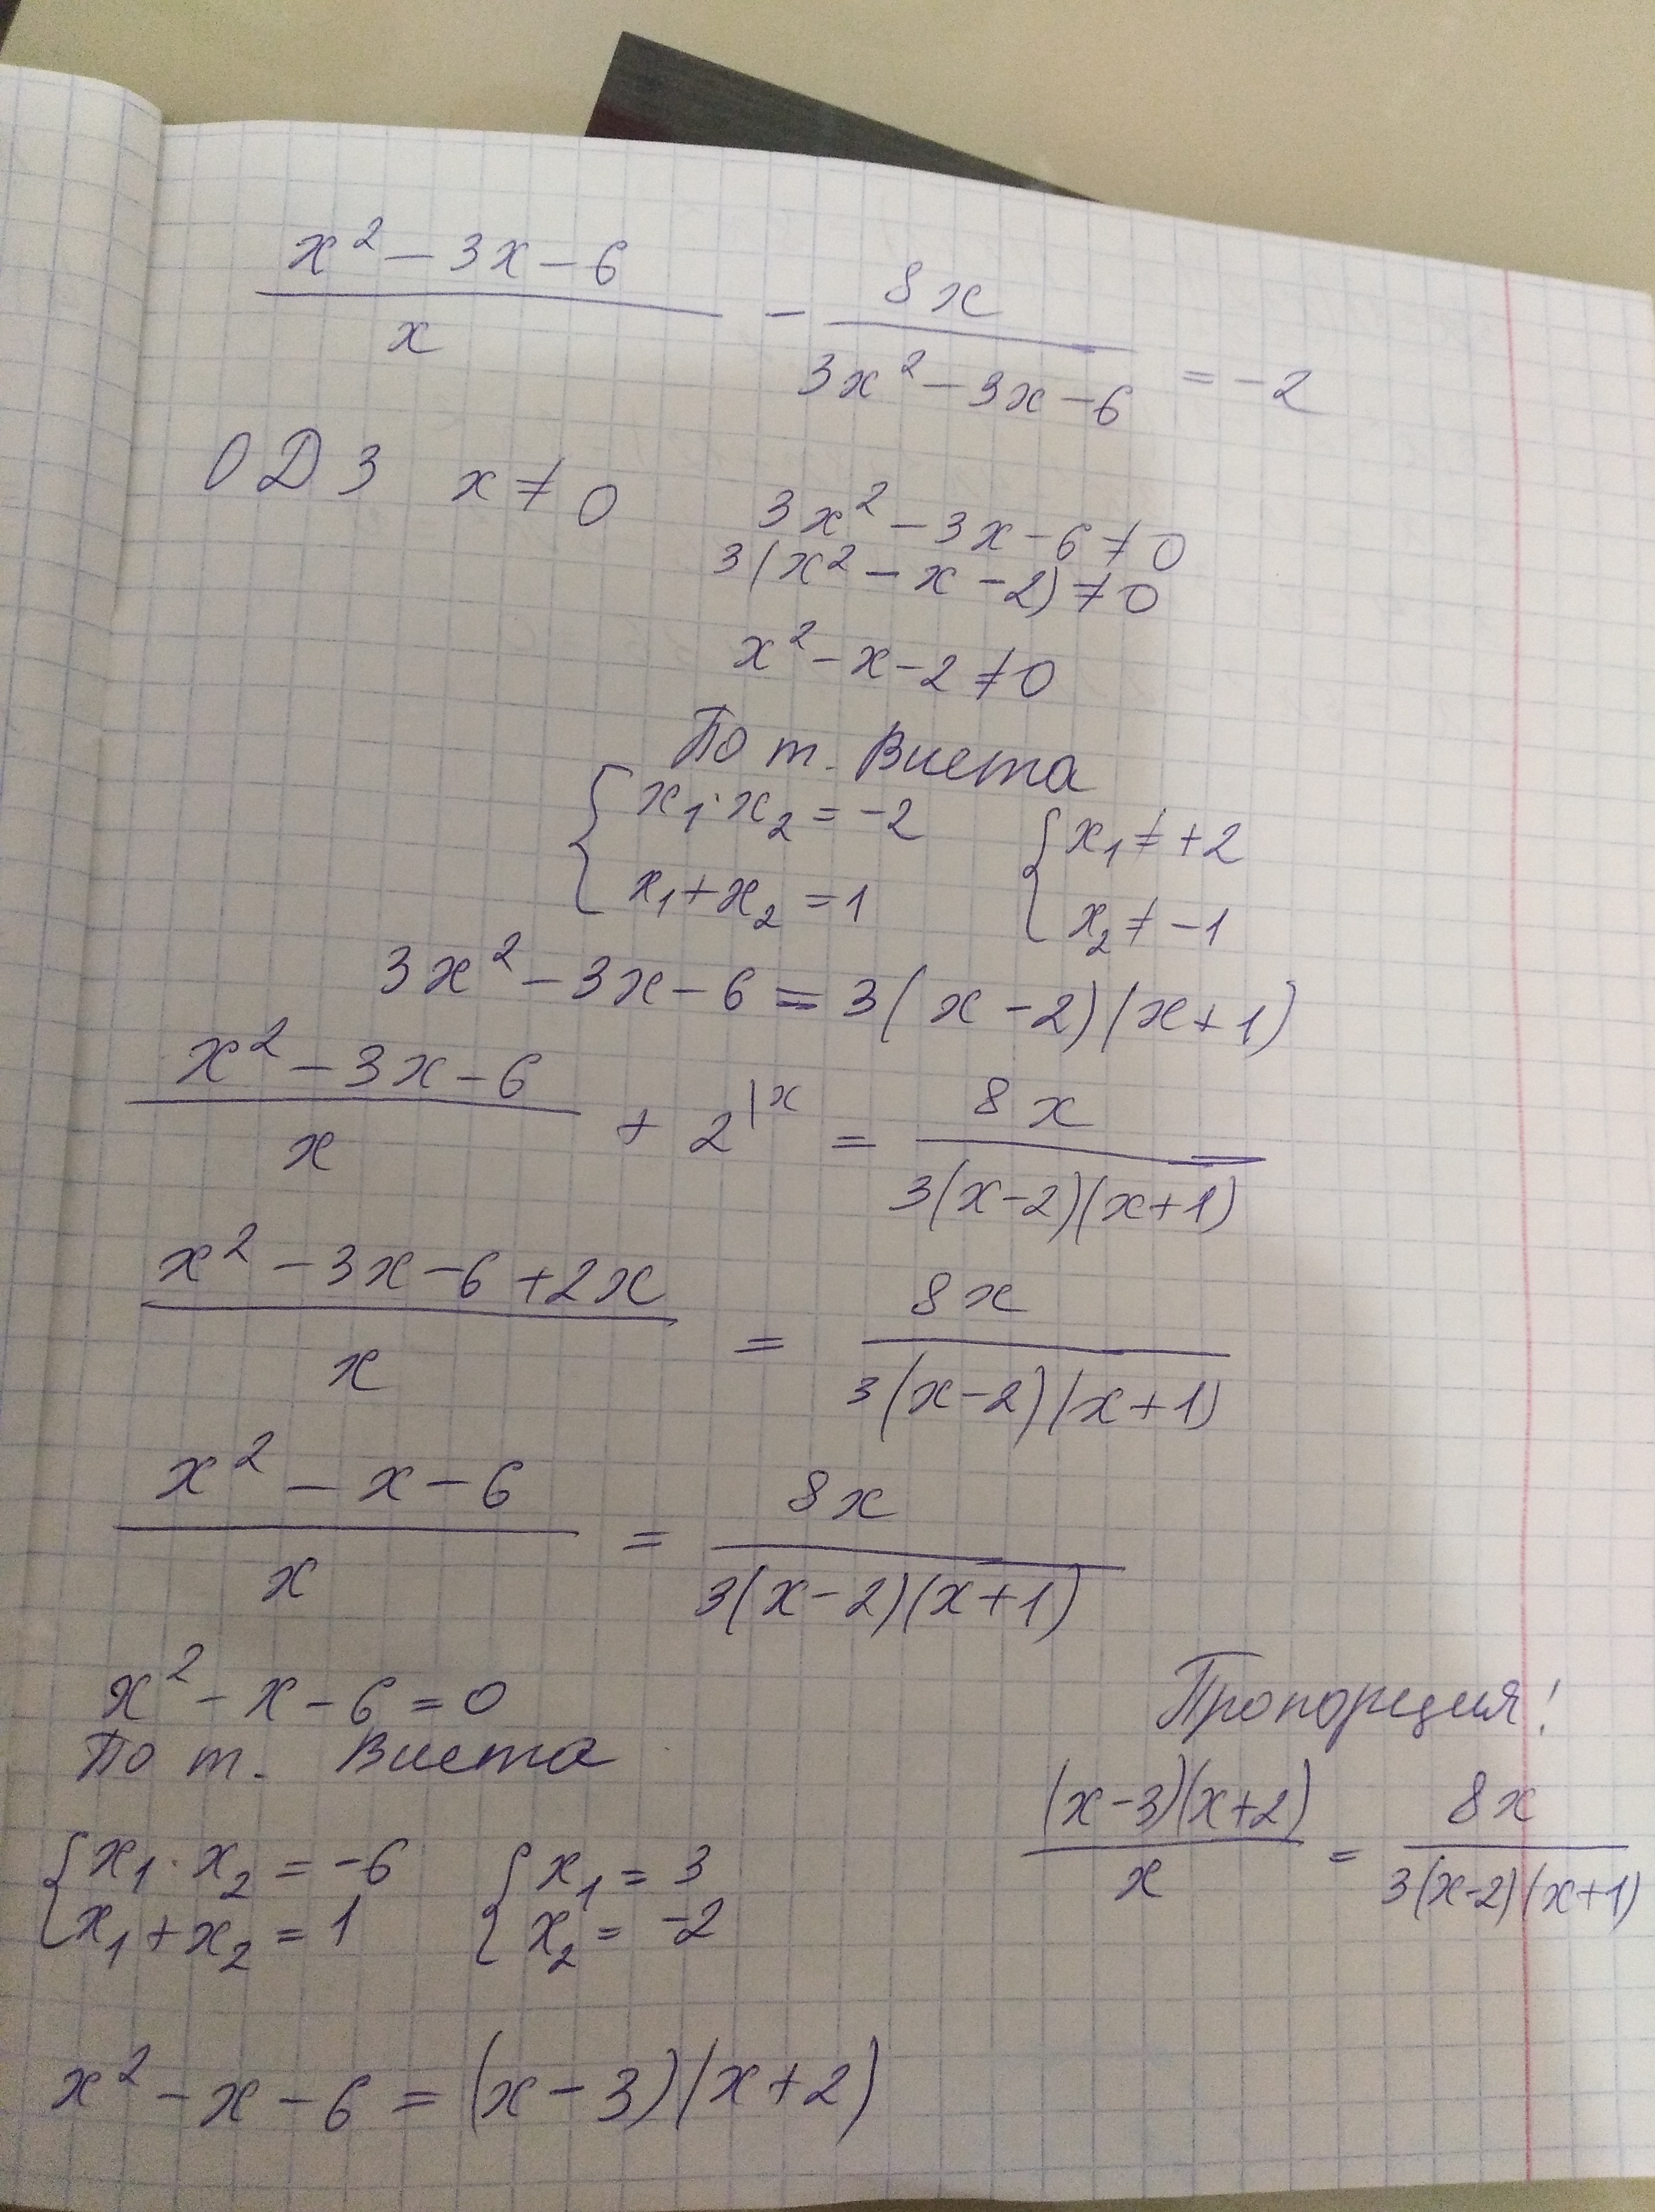 x² - 3x - 6 / x - 8x / 3x² - 3x - 6 = -2
ОДЗ x ≠ 0 3x² - 3x - 6 ≠ 0
3(x² - x - 2) ≠ 0
x² - x - 2 ≠ 0
По т. Виета
{ x₁ · x₂ = -2 { x₁ ≠ +2
x₁ + x₂ = 1 x₂ ≠ -1
3x² - 3x - 6 = 3(x - 2)(x + 1)
x² - 3x - 6 / x + 2 |x = 8x / 3(x-2)(x+1)
x² - 3x - 6 + 2x / x = 8x / 3(x-2)(x+1)
x² - x - 6 / x = 8x / 3(x-2)(x+1)
x² - x - 6 = 0
По т. Виета
{ x₁ · x₂ = -6 { x₁ = 3
x₁ + x₂ = 1 x₂ = -2
x² - x - 6 = (x - 3)(x + 2)
Пропорция!
(x-3)(x+2) / x = 8x / 3(x-2)(x+1)